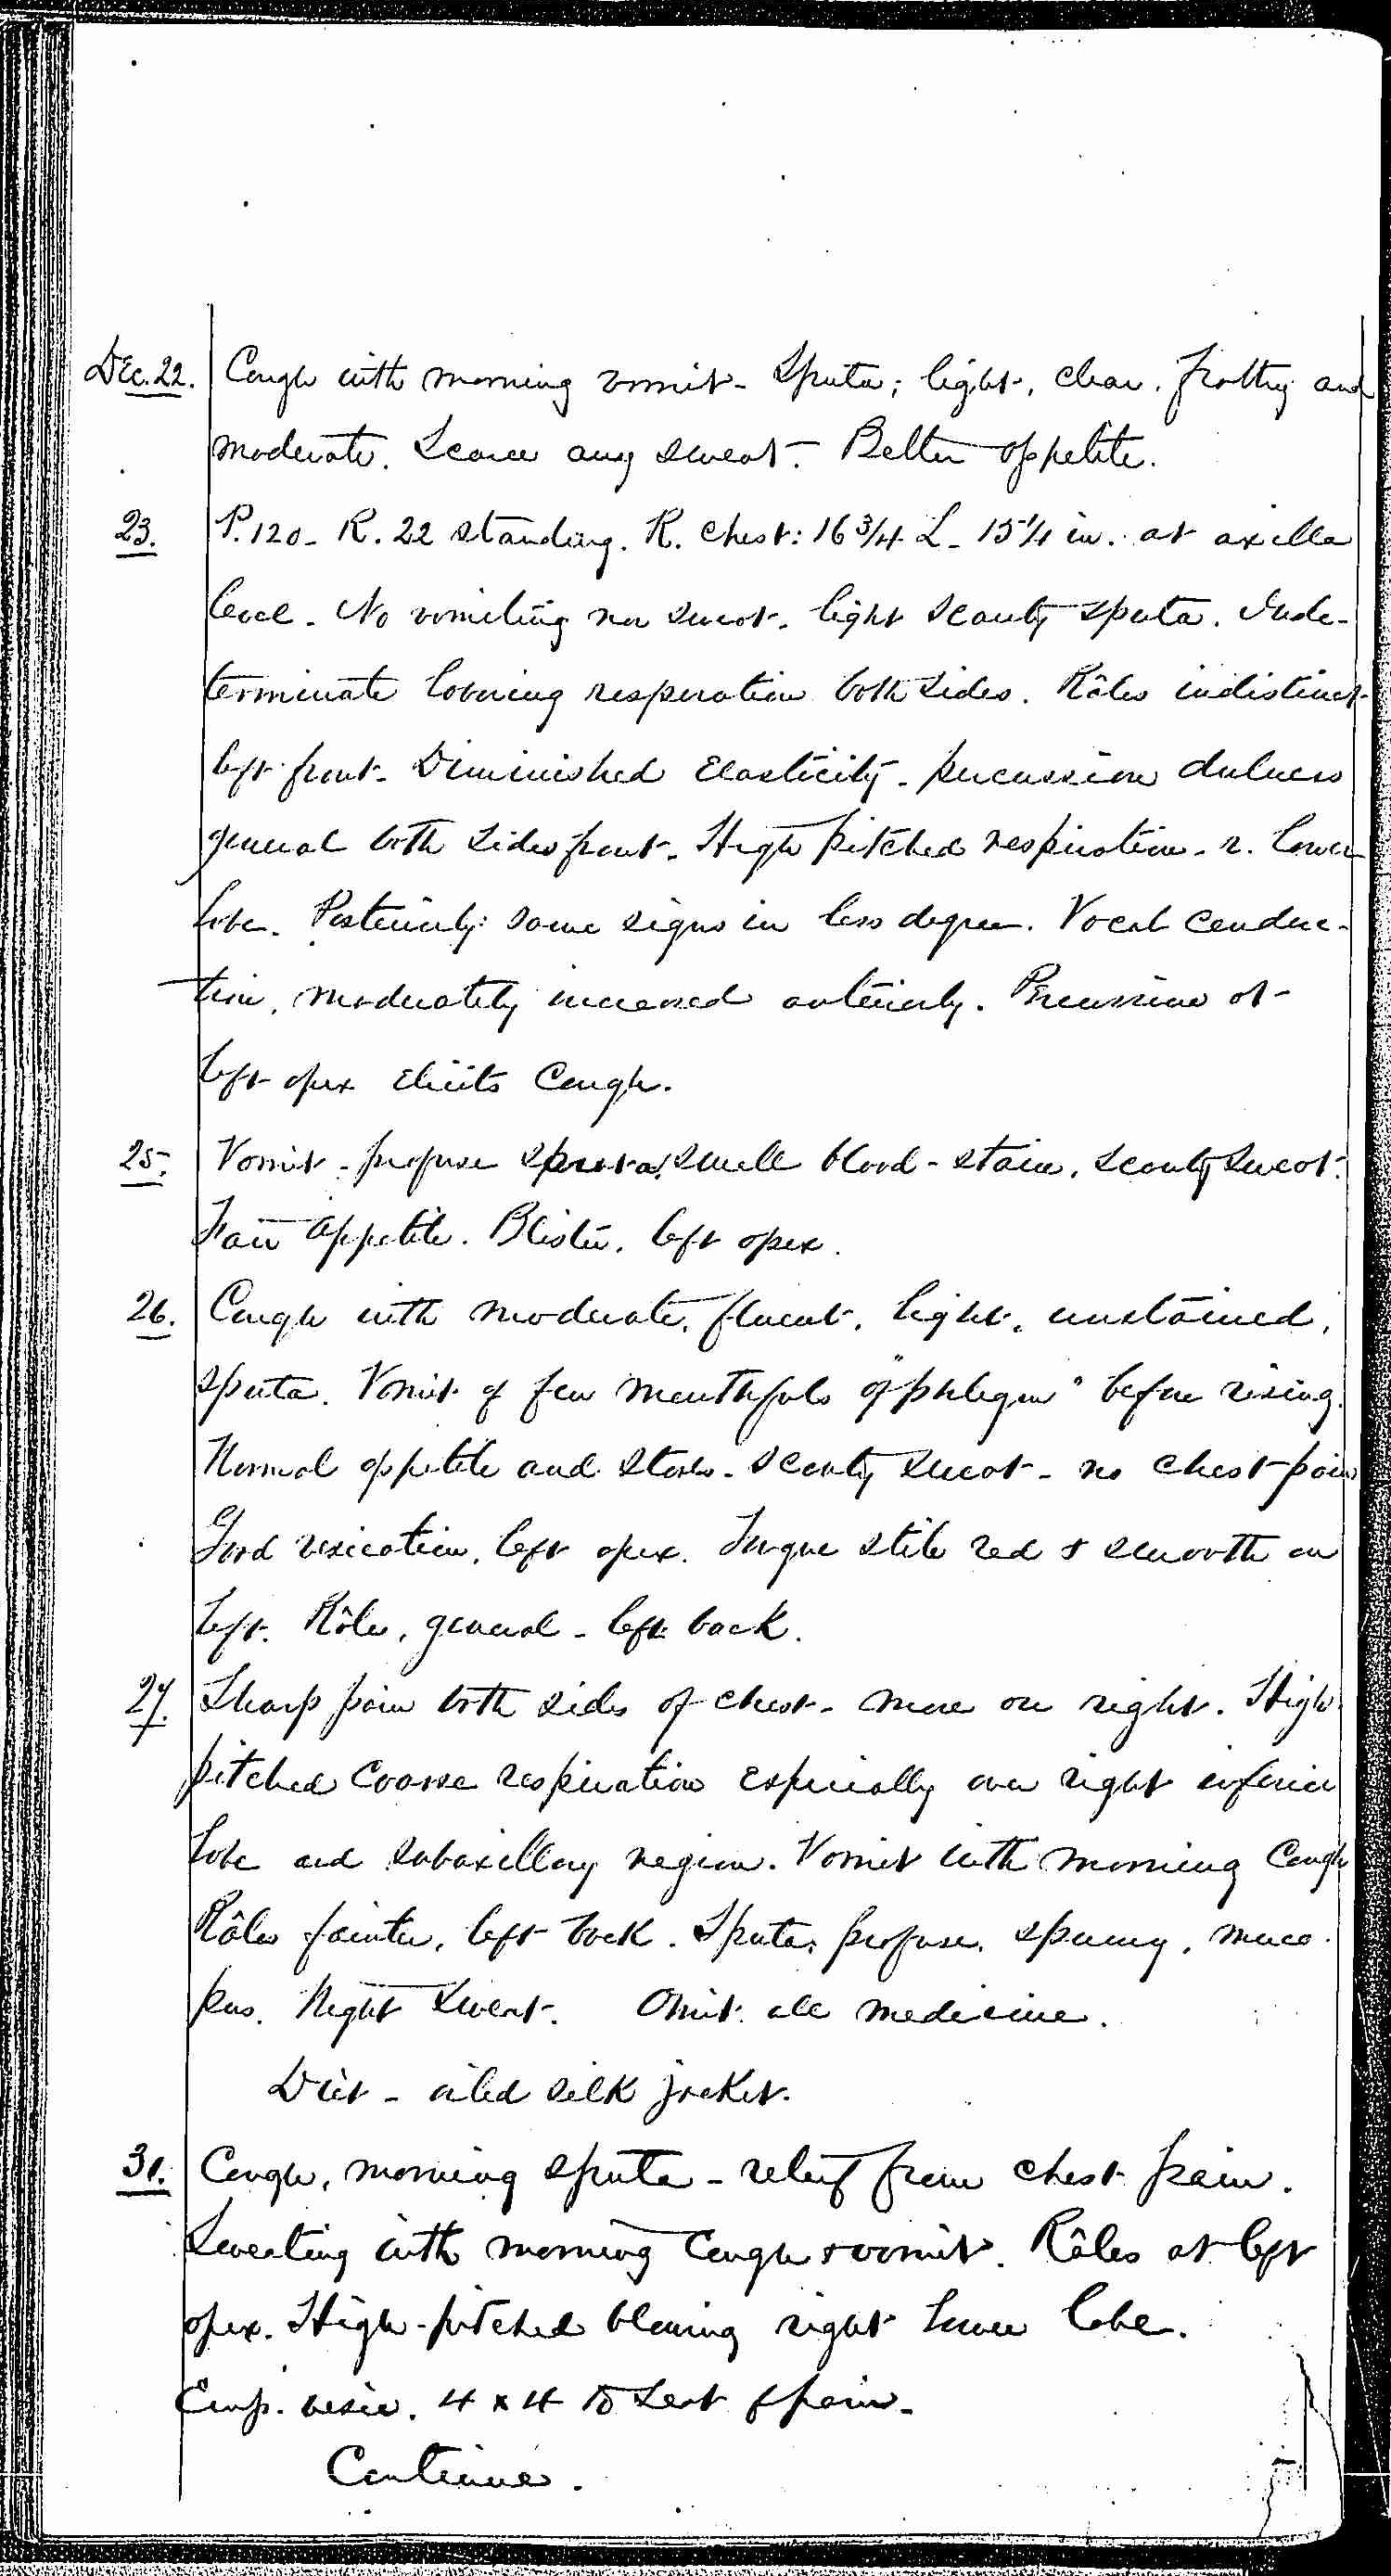 Dec. 22. Cough with morning vomit - Sputa; light, clear, frothy and
moderate. Scarce any sweat. Better appetite.
23. P. 120 - R. 22 standing. R. chest: 16 3/4 L - 15 1/4 in. at axilla
level. No vomiting nor sweat. light scanty sputa. Inde-
terminate blowing respiration both sides. Râles indistinct
left front. Diminished elasticity - percussion dulness
general both sides front. High pitched respiration - r. lower
lobe. Posteriorly: same signs in less degree. Vocal conduc-
tion, moderately increased anteriorly. Percussion at
left apex elicits cough.
25. Vomit - profuse sputa, small blood-stain, scanty sweat.
Fair appetite. Blister, left apex.
26. Cough with moderate, fluent, light, unstained,
sputa. Vomit of few mouthfuls of "phlegm" before rising.
Normal appetite and stools - scanty sweat - no chest-pain
Good vesication, left apex. Tongue still red & smooth on
left. Râles, general - left back.
27. Sharp pain both sides of chest - more on right. High
pitched coarse respiration especially over right inferior
lobe and subaxillary region. Vomit with morning cough
Râles fainter, left back. Sputa, profuse, spumy, muco-
pus. Night sweat. Omit all medicine.
Diet - oiled silk jacket.
31. Cough, morning sputa - relief from chest pain.
Sweating with morning cough & vomit. Râles at left
apex. High-pitched blowing right lower lobe.
Emp. vesic. 4 x 4 to seat of pain -
Continue.